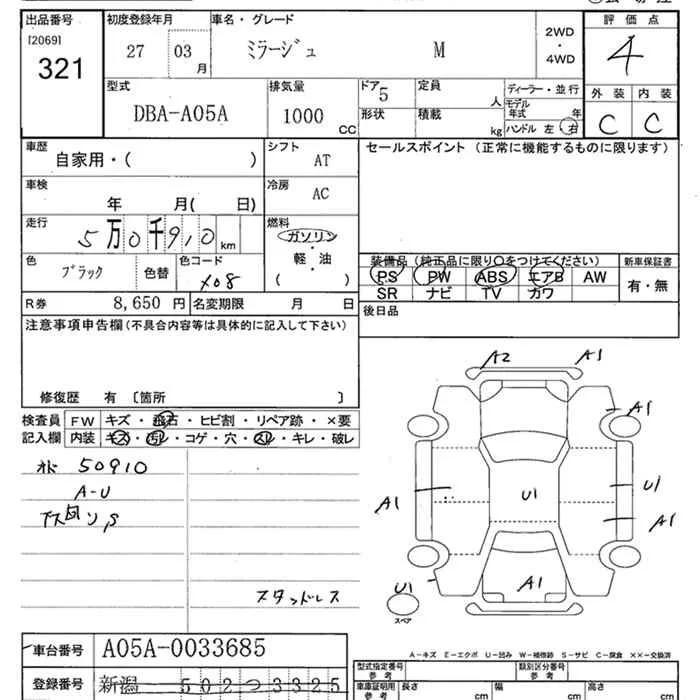 出品番号 初度登録年月 車名・グレード 評価点
[2069] 321
27 03 月 ミラージュ M 2WD・4WD 4
型式 排気量 ドア 5 定員 人 ディーラー・並行 外装 内装
DBA-A05A 1000 CC 形状 積載 kg モデル年式 年 C C
ハンドル 左 右
車歴 シフト セールスポイント (正常に機能するものに限ります)
自家用・( ) AT
車検 冷房
年 月( 日) AC
走行 燃料
5万0千910 km ガソリン・軽・油
( )
色 色コード 装備品 (純正品に限り○をつけてください) 新車保証書
ブラック 色替 X08 PS PW ABS エアB AW 有・無
SR ナビ TV カワ
R券 8,650 円 名変期限 月 日 後日品
注意事項申告欄(不具合内容等は具体的に記入して下さい)
修復歴 有 〔箇所 〕
検査員 FW キズ・飛石・ヒビ割・リペア跡・×要
記入欄 内装 キズ・汚レ・コゲ・穴・スレ・キレ・破レ
50910
A-U
スタッドレス
A2 A1
A1
A1 U1 U1
A1
U1 A1
スペア
A-キズ E-エクボ U-凹み W-補修跡 S-サビ C-腐食 ××-交換済
車台番号 A05A-0033685
型式指定番号 参考 類別区分番号 参考
登録番号 新潟 502 つ 3325
車庫証明用 参考 長さ cm 幅 cm 高さ cm